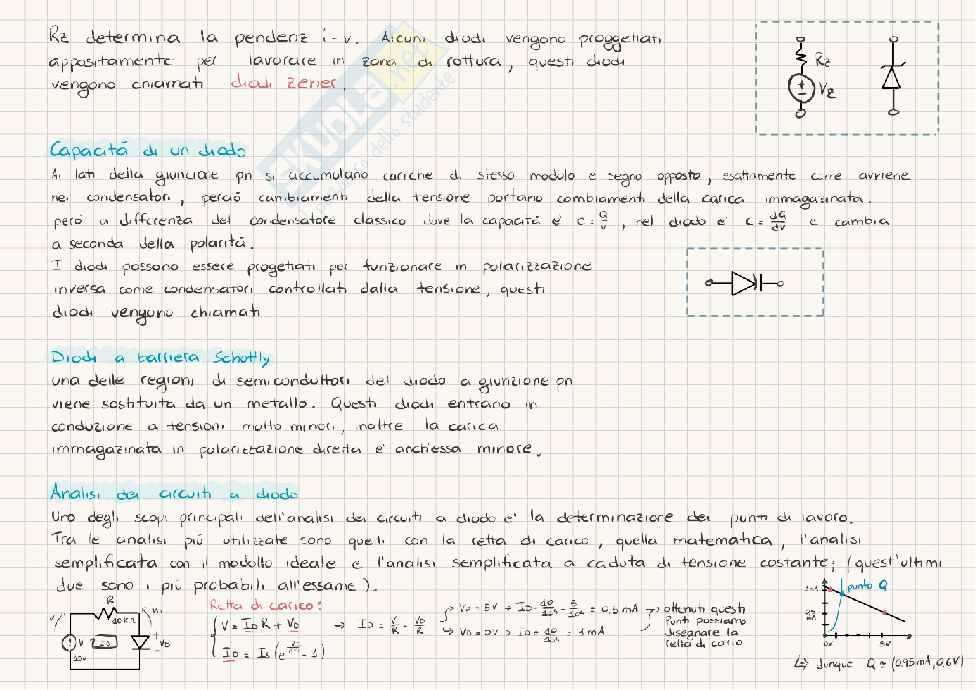 Rz determina la pendenz i-v. Alcuni diodi vengono proggettati
appositamente per lavorare in zona di rottura, questi diodi
vengono chiamati diodi zener.
Rz
Vz
SKUOLA.net
Capacitá di un diodo
Ai lati della giunzione pn si accumulano cariche di stesso modulo e segno opposto, esattamente come avviene
nei condensatori, perció cambiamenti della tensione portano cambiamenti della carica immagazinata.
peró a differenza del condensatore classico dove la capacitá e' C = Q/V, nel diodo e' C = dQ/dV e cambia
a seconda della polaritá.
I diodi possono essere progettati per funzionare in polarizzazione
inversa come condensatori controllati dalla tensione, questi
diodi vengono chiamati
Diodi a barriera Schottly
una delle regioni di semiconduttori del diodo a giunzione pn
viene sostituita da un metallo. Questi diodi entrano in
conduzione a tensioni molto minori, inoltre la carica
immagazinata in polarizzazione diretta e' anch'essa minore.
Analisi dei circuiti a diodo
Uno degli scopi principali dell'analisi dei circuiti a diodo e' la determinazione dei punti di lavoro.
Tra le analisi piú utilizzate sono quelli con la retta di carico, quella matematica, l'analisi
semplificata con il modello ideale e l'analisi semplificata a caduta di tensione costante; (quest'ultimi
due sono i piú probabili all'essame).
Retta di carico:
R
10kΩ
V
10v
VD
V = ID R + VD → ID = V/R - VD/R
VD = 5V → = 0,5 mA
VD = 0V → = 1 mA
→ ottenuti questi
Punti possiamo
disegnare la
retta di carico
punto Q
0v
5v
↳ dunque Q = (0.95mA, 0,6V)